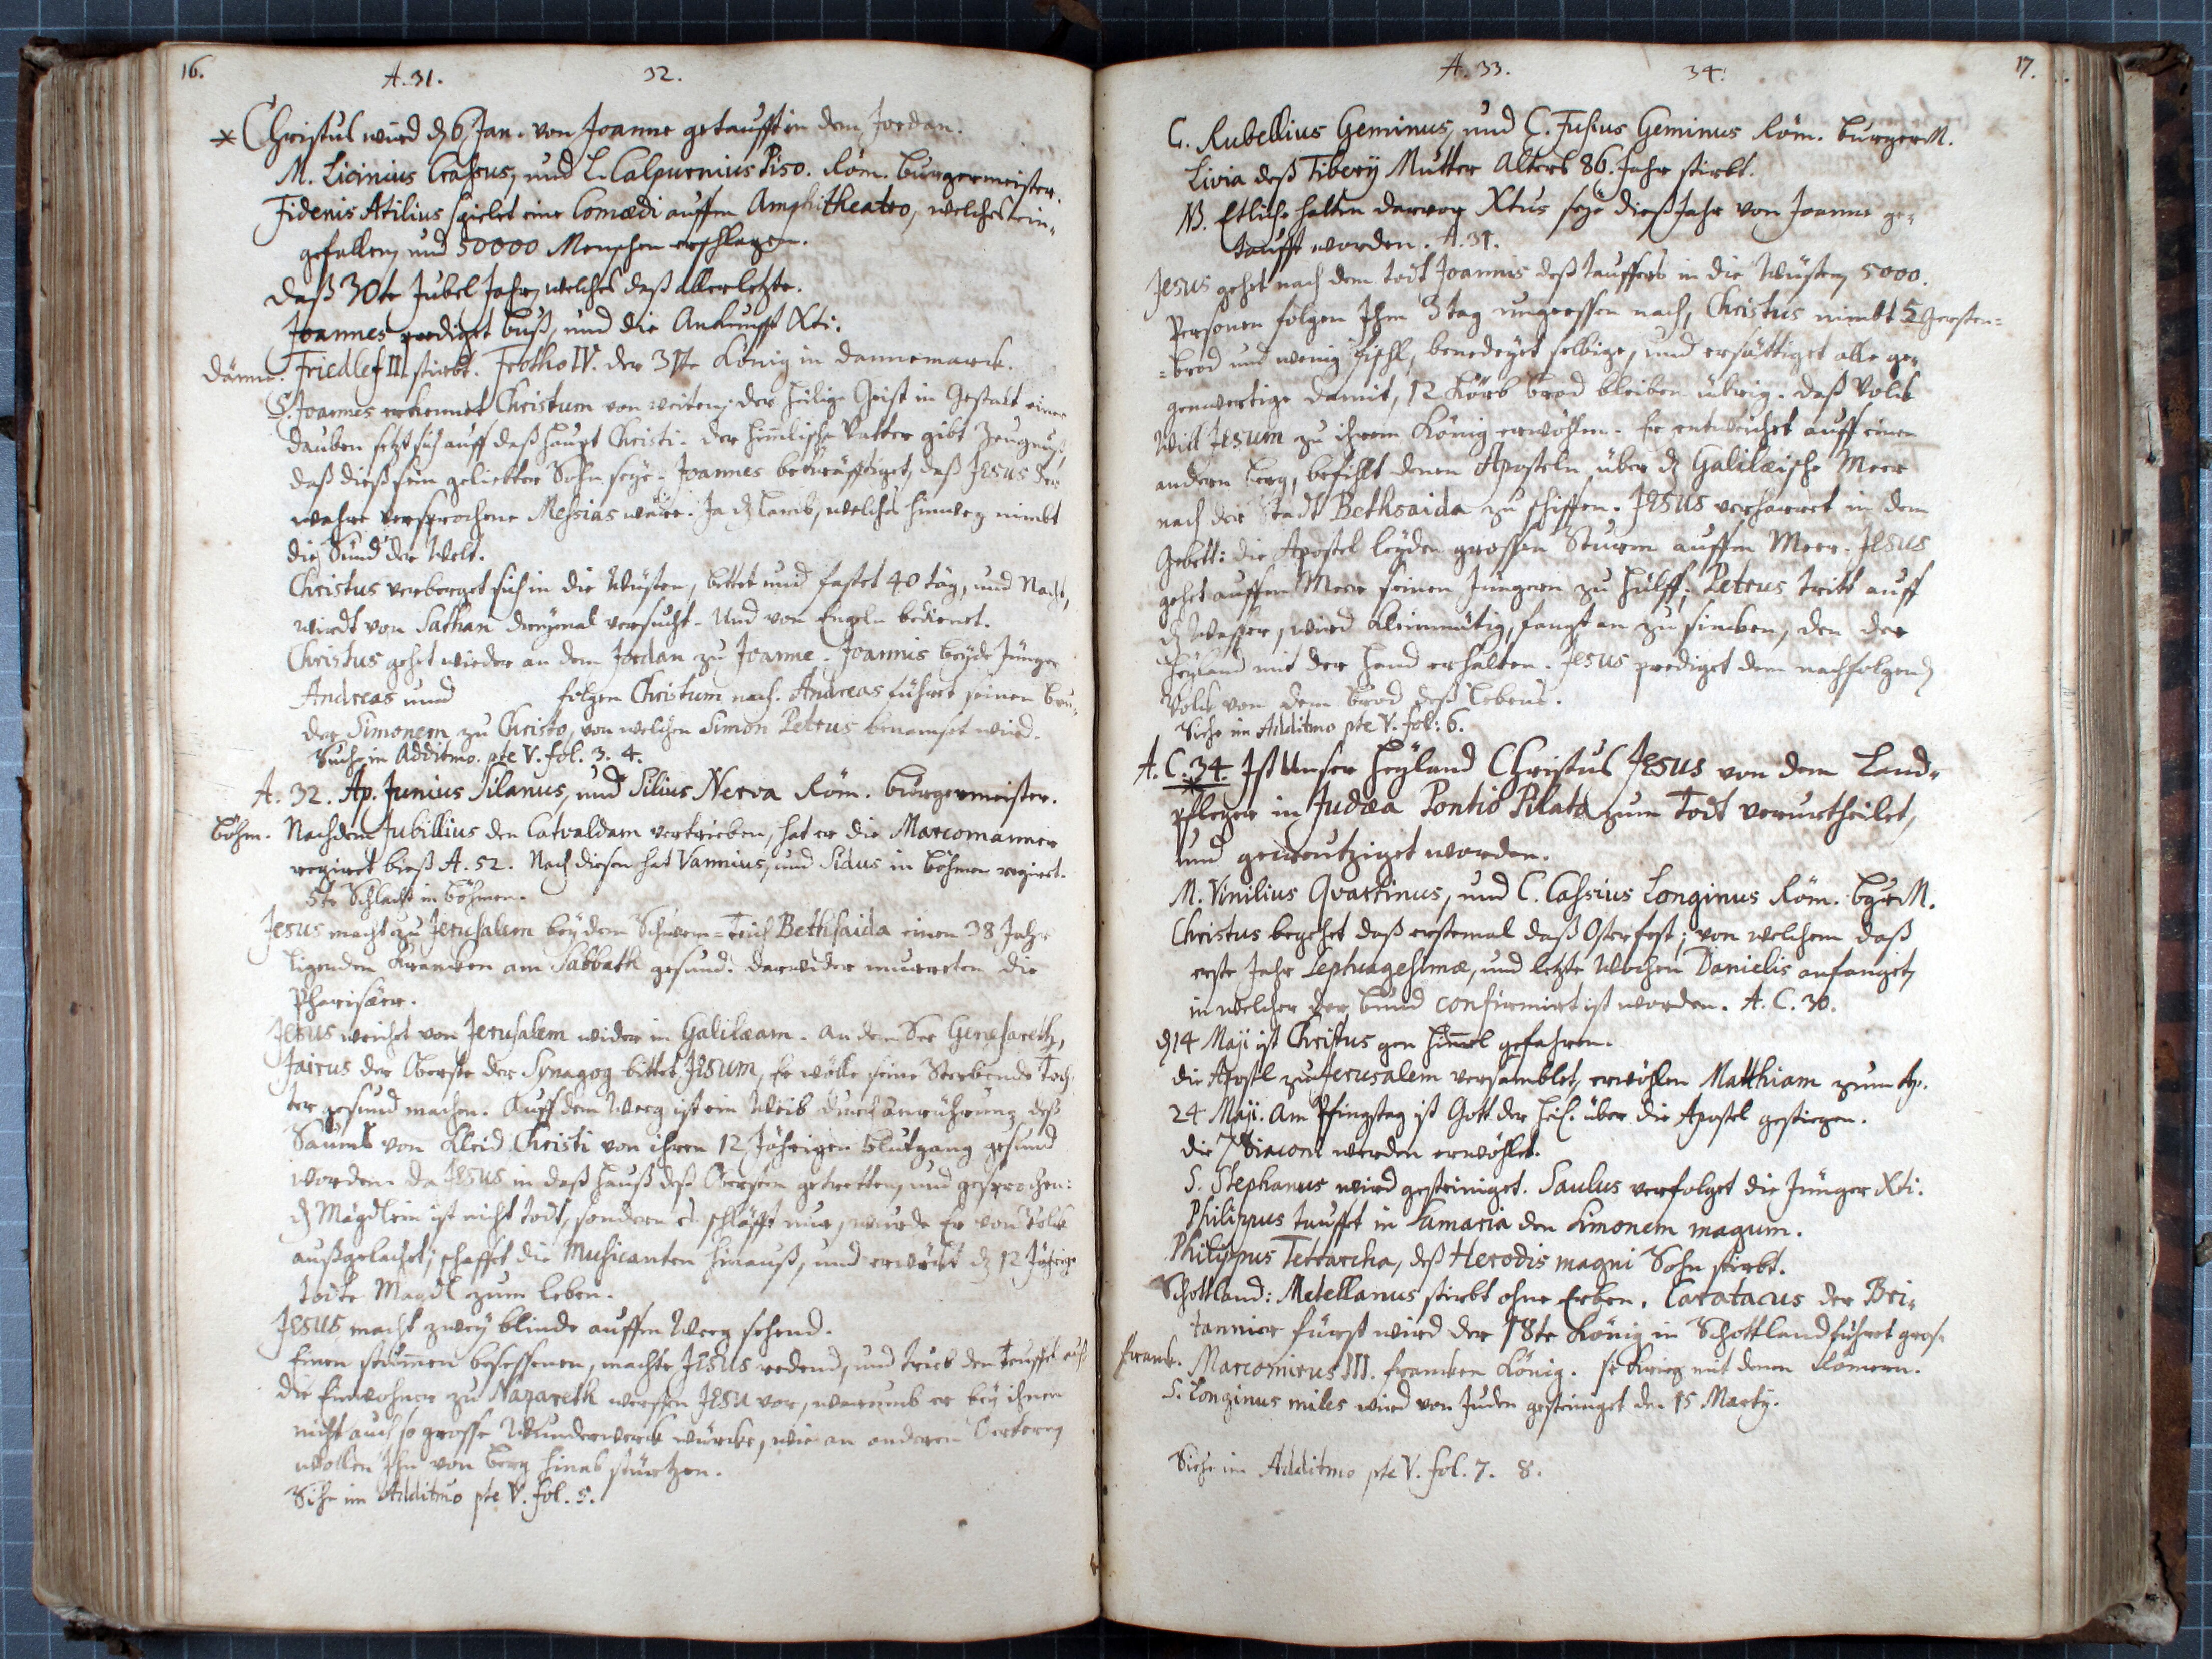 16.
A. 31. 32.
* Christus wird dz 6 Jan. von Joanne getaufft in dem Jordan.
M. Licinius Crassus, und L. Calpurnius Piso. Röm. Burgermeister.
Fidenis Atilius spielet eine Comædi auffm Amphitheatro, welches ein-
gefallen, und 50000 Menschen erschlagen.
Daß 30te Jubel Jahr, welches daß allerletzte.
Joannes prediget Buß, und die Ankunfft Xti.
Dänne. Friedlef III. stirbt. Frotho IV. der 31te König in Dannemarck.
S. Joannes erkennet Christum von weiten, der heilige Geist in Gestalt einer
Dauben setzt sich auff daß Haupt Christi. Der himlische Vatter gibt Zeugnuß,
daß dieß sein geliebter Sohn seye. Joannes bekräfftiget, daß Jesus der
wahre versprochene Messias wäre. Ja dz Lamb, welches hinweg nimbt
die Sünd der Welt.
Christus verberget sich in die Wüsten, bettet und fastet 40 täg, und Nacht,
wirdt von Sathan dreymal versucht. Und von Engeln bedienet.
Christus gehet wieder an dem Jordan zu Joanne. Joannis beyde Jünger
Andreas und folgen Christum nach. Andreas führet seinen Bru-
der Simonem zu Christo, von welchen Simon Petrus benamset wird.
Suche in Additmo. pte V. fol. 3. 4.
A. 32. Ap. Junius Silanus, und Silius Nerva Röm. Bürgermeister.
Böhm. Nachdem Jubillius den Catvaldam vertrieben, hat er die Marcomanner
regiret bieß A. 52. Nach diesen hat Vannius, und Sidus in Böhmen regiert.
5te Schlacht in Böhmen.
Jesus macht zu Jerusalem bey dem Schwem-Teich Bethsaida einen 38 Jahr
ligenden Krancken am Sabbath gesund. Darwider murreten die
Pharisäer.
Jesus weichet von Jerusalem wider in Galilæam. An dem See Genesareth,
Jairus der Oberste der Synagog bittet Jesum, Er wölle seine Sterbende Toch-
ter gesund machen. Auff dem Weeg ist ein Weib durch anrührung deß
Saumß von Kleid Christi von ihren 12 Jährigen Blutgang gesund
worden. Da Jesus in daß Hauß deß Obersten getretten, und gesprochen:
dz Mägdlein ist nicht todt, sondern es schläfft nur, wurde Er von Volck
außgelachet; schafft die Musicanten hinauß, und erweckt dz 12 Jährige
todte Mägdl zum Leben.
Jesus macht zwey blinde auffm Weeg sehend.
Einen stummen besessenen, machte Jesus redend, und trieb den Teuffel auß
Die Einwohner zu Nazareth werffen Jesu vor, warumb er bey ihnen
nicht auch so grosse Wunderwerck würcke, wie an anderen Orteren
wollen Ihn von Berg hinab stürtzen.
Sihe im Additmo pte V. fol. 5.
17.
A. 33. 34.
C. Rubellius Geminus, und C. Fusius Geminus Röm. BurgerM.
Livia deß Tiberij Mutter Alters 86. Jahr stirbt.
NB. Etliche halten darvor Xtus seye dieß Jahr von Joanne ge-
taufft worden. A. 31.
Jesus gehet nach dem todt Joannis deß tauffers in die Wüsten, 5000.
Personen folgen Ihm 3 tag ungeessen nach, Christus nimbt 5 Gersten-
-brod und wenig Fischl, benedeyet selbige, und ersättiget alle ge-
genwertige damit, 12 Körb brod bleiben übrig. Daß Volck
will Jesum zu ihrem König erwöhlen. Er entweichet auff einen
andern Berg, befihlt denen Aposteln über dz Galilæische Meer
nach der Stadt Bethsaida zu schiffen. Jesus verharret in dem
Gebett: die Apostel leyden grossen Sturm auffm Meer. Jesus
gehet auffm Meer seinen Jüngern zu hülff; Petrus tritt auff
dz Wasser, wird kleinmütig, fangt an zu sincken, den der
Heyland mit der Hand erhalten. Jesus prediget dem nachfolgendz
Volck von dem Brod deß Lebens.
Siehe im Additmo pte V. fol: 6.
A. C. 34. Ist Unser Heyland Christus Jesus von dem Land-
*
pfleger in Judæa Pontio Pilato zum Todt verurtheilet,
und gecreutziget worden.
M. Vinilius Quartinus, und C. Cassius Longinus Röm. BgrM.
Christus begehet daß erstemal daß Osterfest; von welchem daß
erste Jahr Septuagesimæ, und letzte Wochen Danielis anfanget,
in welcher der Bund confirmirt ist worden. A. C. 30.
dz 14 Maji ist Christus gen Himel gefahren.
die Apostl zu Jerusalem versamblet, erwöhlen Matthiam zum Ap.
24 Maji. Am Pfingstag ist Gott der heil. über die Apostel gestiegen.
die 7 Diaconi werden erwöhlet.
S. Stephanus wird gesteiniget. Saulus verfolget die Jünger Xti.
Philippus taufft in Samaria den Simonem magum.
Philippus Tetrarcha, deß Herodis magni Sohn stirbt.
Schottland: Metellanus stirbt ohne Erben. Caratacus der Bri-
tannier fürst wird der 18te König in Schottland führet gros-
Franck. Marcomirus III. Francken König. se Krieg mit denen Römern.
S. Longinus miles wird von Juden gesteiniget den 15 Martij.
Siehe im Additmo pte V. fol. 7. 8.